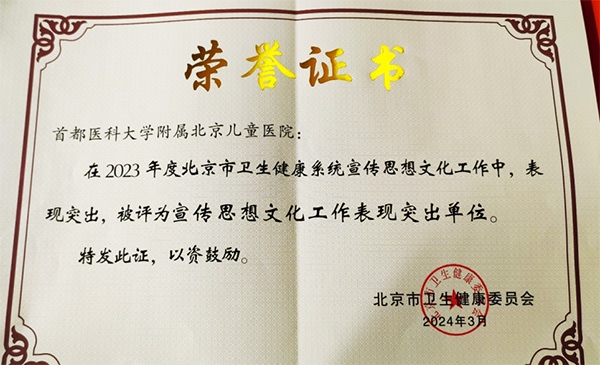 荣誉证书
首都医科大学附属北京儿童医院：
在2023年度北京市卫生健康系统宣传思想文化工作中，表
现突出，被评为宣传思想文化工作表现突出单位。
特发此证，以资鼓励。
北京市卫生健康委员会
2024年3月
北京市卫生健康委员会